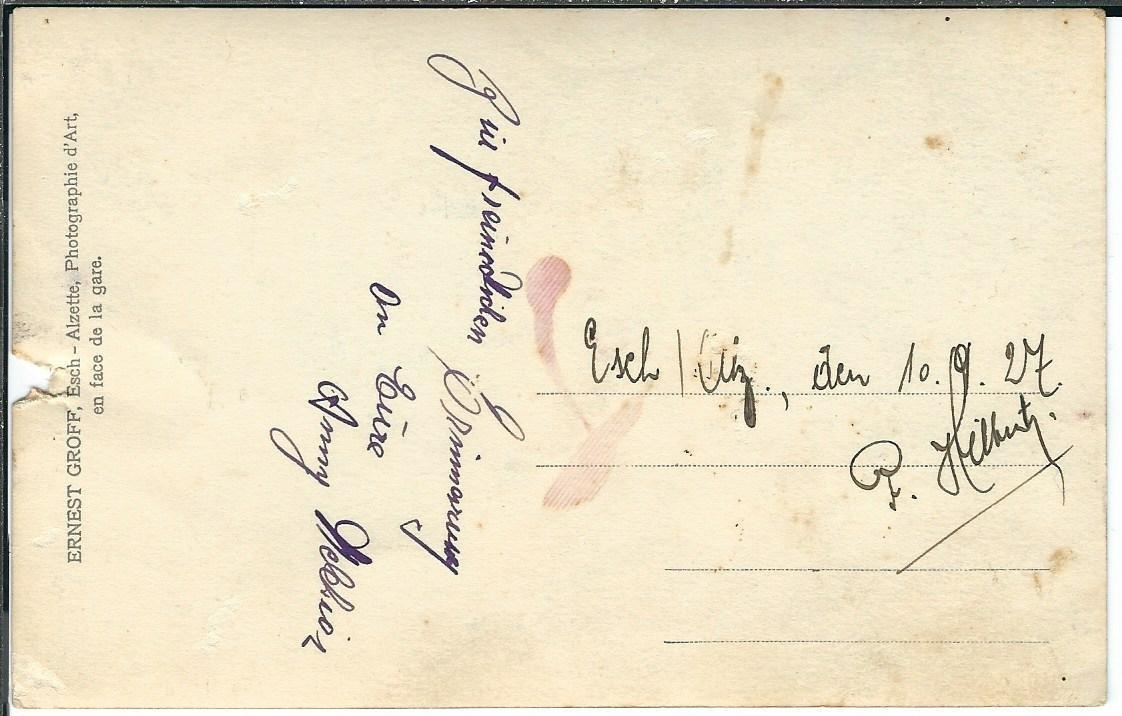 ERNEST GROFF, Esch-Alzette, Photographie d'Art,
en face de la gare.
Zur freundlichen Erinnerung
an Eure
Anny
Esch / Alz., den 10. 9. 27.